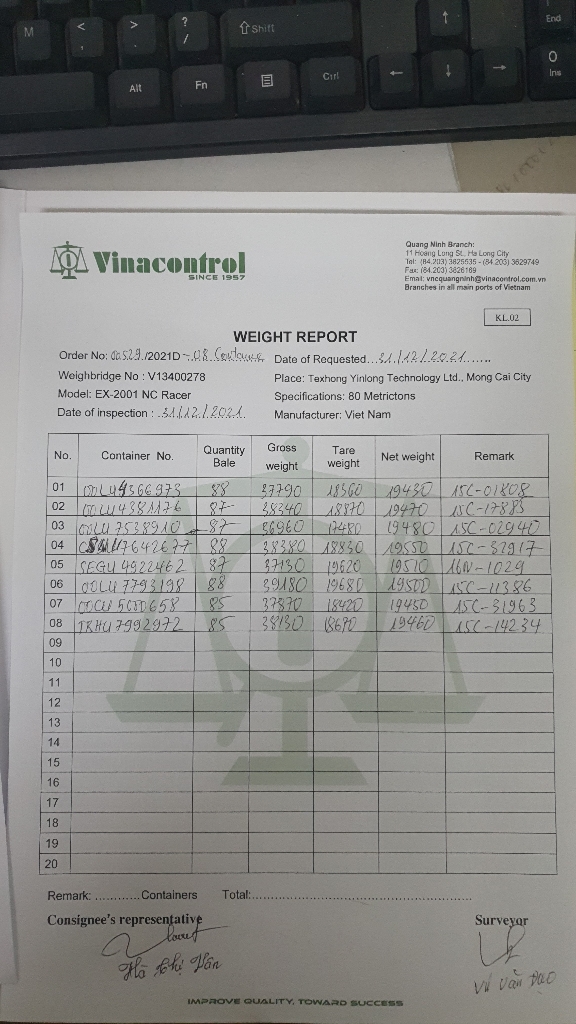 M < , > . ? / ⇧Shift ↑ End
Alt Fn Ctrl ← ↓ → 0 Ins
Vinacontrol
SINCE 1957
Quang Ninh Branch:
11 Hoang Long St., Ha Long City
Tel: (84.203) 3825535 - (84.203) 3629749
Fax: (84.203) 3826169
Email: vncquangninh@vinacontrol.com.vn
Branches in all main ports of Vietnam
KL.02
WEIGHT REPORT
Order No: 00529/2021D - 08 Date of Requested...31/12/2021......
Weighbridge No : V13400278 Place: Texhong Yinlong Technology Ltd., Mong Cai City
Model: EX-2001 NC Racer Specifications: 80 Metrictons
Date of inspection : 31/12/2021 Manufacturer: Viet Nam
No. Container No. Quantity Bale Gross weight Tare weight Net weight Remark
01 OOLU4366973 88 37790 18360 19430 15C-01808
02 OOLU4381176 87 38340 18870 19470 15C-17883
03 OOLU7538910 87 36960 17480 19480 15C-02940
04 7642677 88 38380 18830 19550 15C-32917
05 SEGU4922462 87 37130 17620 19510 16N-1029
06 OOLU7793198 88 39180 19680 19500 15C-11386
07 85 37870 18420 19450 15C-31963
08 TRHU7992972 85 38130 18670 19460 15C-14234
09
10
11
12
13
14
15
16
17
18
19
20
Remark: ............Containers Total:......................................................
Consignee's representative Surveyor
Hà Thị Vân
Vũ Văn Đạo
IMPROVE QUALITY, TOWARD SUCCESS